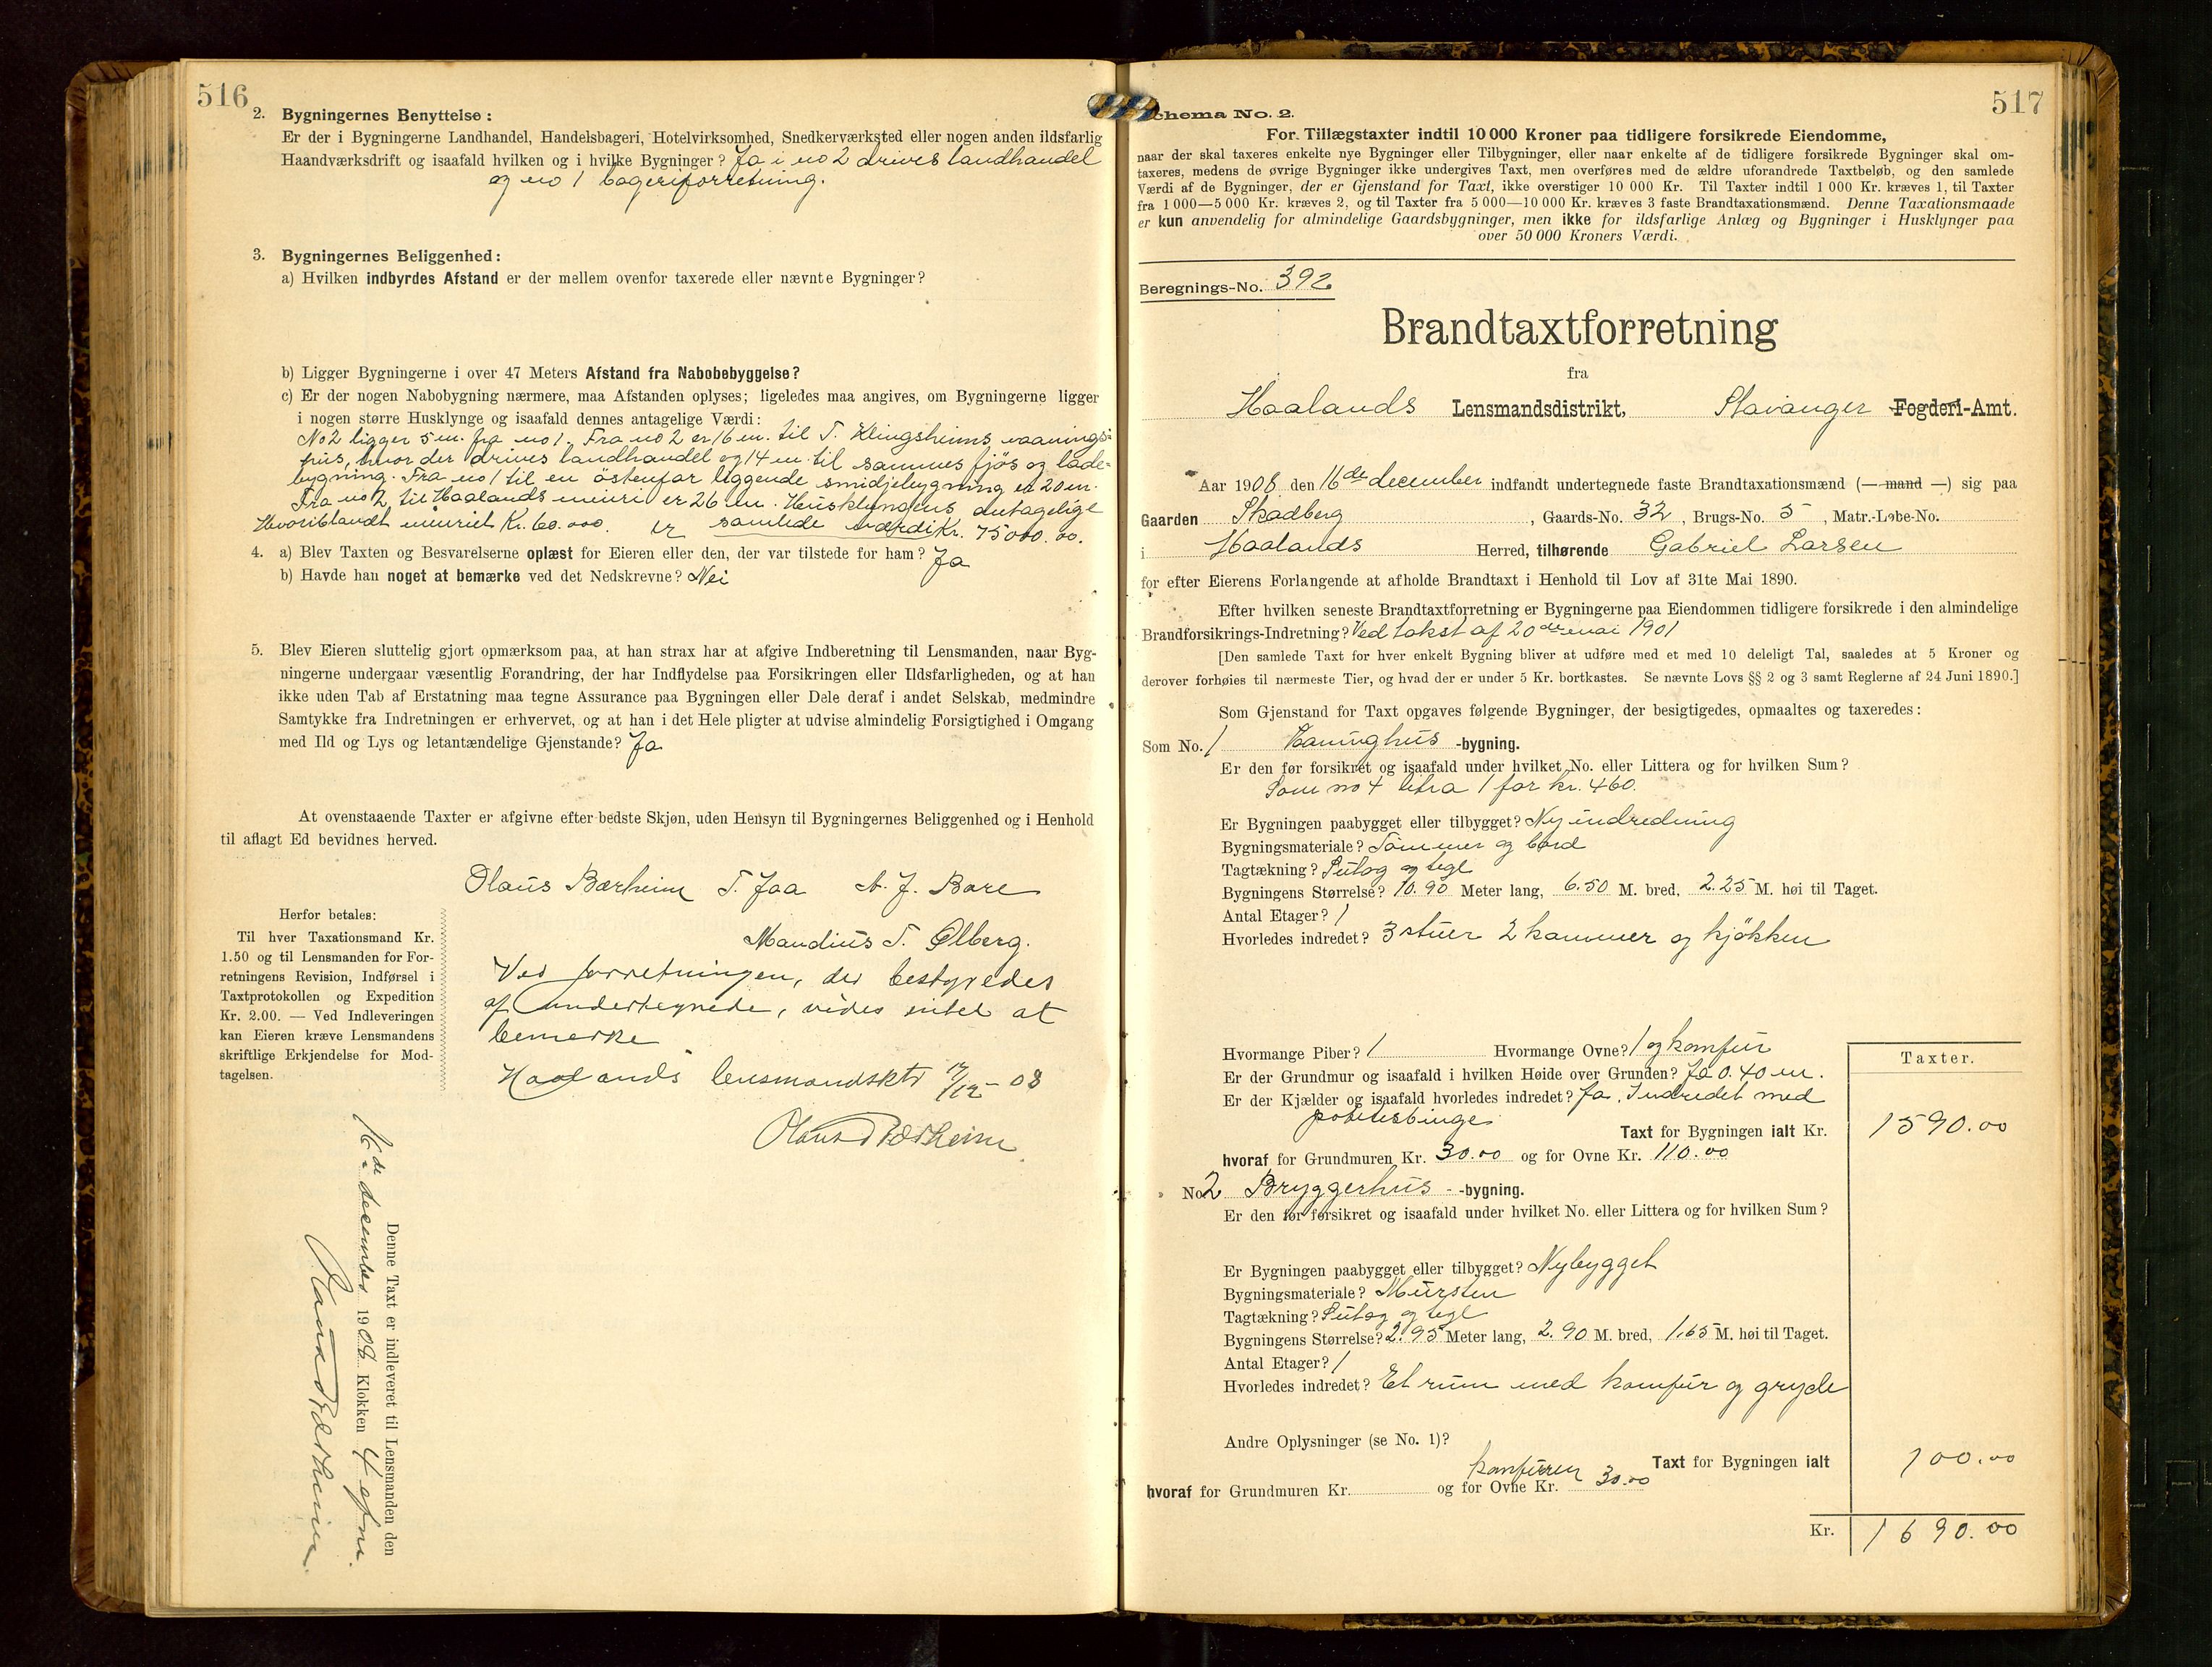 516
2. Bygningernes Benyttelse:
Er der i Bygningerne Landhandel, Handelsbageri, Hotelvirksomhed, Snedkerværksted eller nogen anden ildsfarlig
Haandværksdrift og isaafald hvilken og i hvilke Bygninger? Ja i no 2 drives landhandel
og no 1 bageriforretning.
3. Bygningernes Beliggenhed:
a) Hvilken indbyrdes Afstand er der mellem ovenfor taxerede eller nævnte Bygninger?
b) Ligger Bygningerne i over 47 Meters Afstand fra Nabobebyggelse?
c) Er der nogen Nabobygning nærmere, maa Afstanden oplyses; ligeledes maa angives, om Bygningerne ligger
i nogen større Husklynge og isaafald dennes antagelige Værdi:
No 2 ligger 5 m. fra no 1. Fra no 2 er 16 m. til T. Klingsheims vaanings-
hus, hvor der drives landhandel og 14 m. til sammes fjös og lade-
bygning. Fra no 1 til en östenfor liggende smidjebygning er 20 m.
Fra no 2 til Haalands meieri er 26 m. Husklyngens antagelige
Hvoriblandt meieriet Kr. 60.000. er samlede værdi Kr. 75000.00.
4. a) Blev Taxten og Besvarelserne oplæst for Eieren eller den, der var tilstede for ham? Ja
b) Havde han noget at bemærke ved det Nedskrevne? Nei
5. Blev Eieren sluttelig gjort opmærksom paa, at han strax har at afgive Indberetning til Lensmanden, naar Byg-
ningerne undergaar væsentlig Forandring, der har Indflydelse paa Forsikringen eller Ildsfarligheden, og at han
ikke uden Tab af Erstatning maa tegne Assurance paa Bygningen eller Dele deraf i andet Selskab, medmindre
Samtykke fra Indretningen er erhvervet, og at han i det Hele pligter at udvise almindelig Forsigtighed i Omgang
med Ild og Lys og letantændelige Gjenstande? Ja
At ovenstaaende Taxter er afgivne efter bedste Skjøn, uden Hensyn til Bygningernes Beliggenhed og i Henhold
til aflagt Ed bevidnes herved.
Olaus Bærheim T. Jaa A. J. Bore
Maudius T. Ølberg.
Herfor betales:
Til hver Taxationsmand Kr.
1.50 og til Lensmanden for For-
retningens Revision, Indførsel i
Taxtprotokollen og Expedition
Kr. 2.00. — Ved Indleveringen
kan Eieren kræve Lensmandens
skriftlige Erkjendelse for Mod-
tagelsen.
Ved forretningen, der bestyredes
af undertegnede, vides intet at
bemerke
Haalands lensmandsktr 17/12-08
Olaus Bærheim
Denne Taxt er indleveret til Lensmanden den
16de december 1908 Klokken 4 efm.
Olaus Bærheim.
517
Schema No. 2.
For Tillægstaxter indtil 10 000 Kroner paa tidligere forsikrede Eiendomme,
naar der skal taxeres enkelte nye Bygninger eller Tilbygninger, eller naar enkelte af de tidligere forsikrede Bygninger skal om-
taxeres, medens de øvrige Bygninger ikke undergives Taxt, men overføres med de ældre uforandrede Taxtbeløb, og den samlede
Værdi af de Bygninger, der er Gjenstand for Taxt, ikke overstiger 10 000 Kr. Til Taxter indtil 1 000 Kr. kræves 1, til Taxter
fra 1 000—5 000 Kr. kræves 2, og til Taxter fra 5 000—10 000 Kr. kræves 3 faste Brandtaxationsmænd. Denne Taxationsmaade
er kun anvendelig for almindelige Gaardsbygninger, men ikke for ildsfarlige Anlæg og Bygninger i Husklynger paa
over 50 000 Kroners Værdi.
Beregnings-No. 392
Brandtaxtforretning
fra
Haalands Lensmandsdistrikt, Stavanger Fogderi-Amt.
Aar 1908 den 16de december indfandt undertegnede faste Brandtaxationsmænd (— mand —) sig paa
Gaarden Skadberg, Gaards-No. 32, Brugs-No. 5, Matr.-Løbe-No.
i Haalands Herred, tilhørende Gabriel Larsen
for efter Eierens Forlangende at afholde Brandtaxt i Henhold til Lov af 31te Mai 1890.
Efter hvilken seneste Brandtaxtforretning er Bygningerne paa Eiendommen tidligere forsikrede i den almindelige
Brandforsikrings-Indretning? Ved takst af 20de mai 1901
[Den samlede Taxt for hver enkelt Bygning bliver at udføre med et med 10 deleligt Tal, saaledes at 5 Kroner og
derover forhøies til nærmeste Tier, og hvad der er under 5 Kr. bortkastes. Se nævnte Lovs §§ 2 og 3 samt Reglerne af 24 Juni 1890.]
Som Gjenstand for Taxt opgaves følgende Bygninger, der besigtigedes, opmaaltes og taxeredes:
Som No. 1 Vaaninghus -bygning.
Er den før forsikret og isaafald under hvilket No. eller Littera og for hvilken Sum?
Som no 4 litra 1 for kr. 460.
Er Bygningen paabygget eller tilbygget? Ny indredning
Bygningsmateriale? Tömmer og bord
Tagtækning? Sutag og tegl
Bygningens Størrelse? 10.90 Meter lang, 6.50 M. bred, 2.25 M. høi til Taget.
Antal Etager? 1
Hvorledes indredet? 3 stuer 2 kammer og kjökken
Hvormange Piber? 1 Hvormange Ovne? 1 og komfur
Taxter.
Er der Grundmur og isaafald i hvilken Høide over Grunden? Ja 0.40 m.
Er der Kjælder og isaafald hvorledes indredet? Ja. Indredet med
potetesbinge
Taxt for Bygningen ialt Kr. 1590.00
hvoraf for Grundmuren Kr. 30.00 og for Ovne Kr. 110.00
No 2 Bryggerhus -bygning.
Er den før forsikret og isaafald under hvilket No. eller Littera og for hvilken Sum?
Er Bygningen paabygget eller tilbygget? Nybygget
Bygningsmateriale? Mursten
Tagtækning? Sutag og tegl
Bygningens Størrelse? 2.95 Meter lang, 2.90 M. bred, 1.65 M. høi til Taget.
Antal Etager? 1
Hvorledes indredet? Et rum med komfur og gryde
Andre Oplysninger (se No. 1)?
Taxt for Bygningen ialt 100.00
komfuren
hvoraf for Grundmuren Kr. og for Ovne Kr. 30.00
Kr. 1690.00